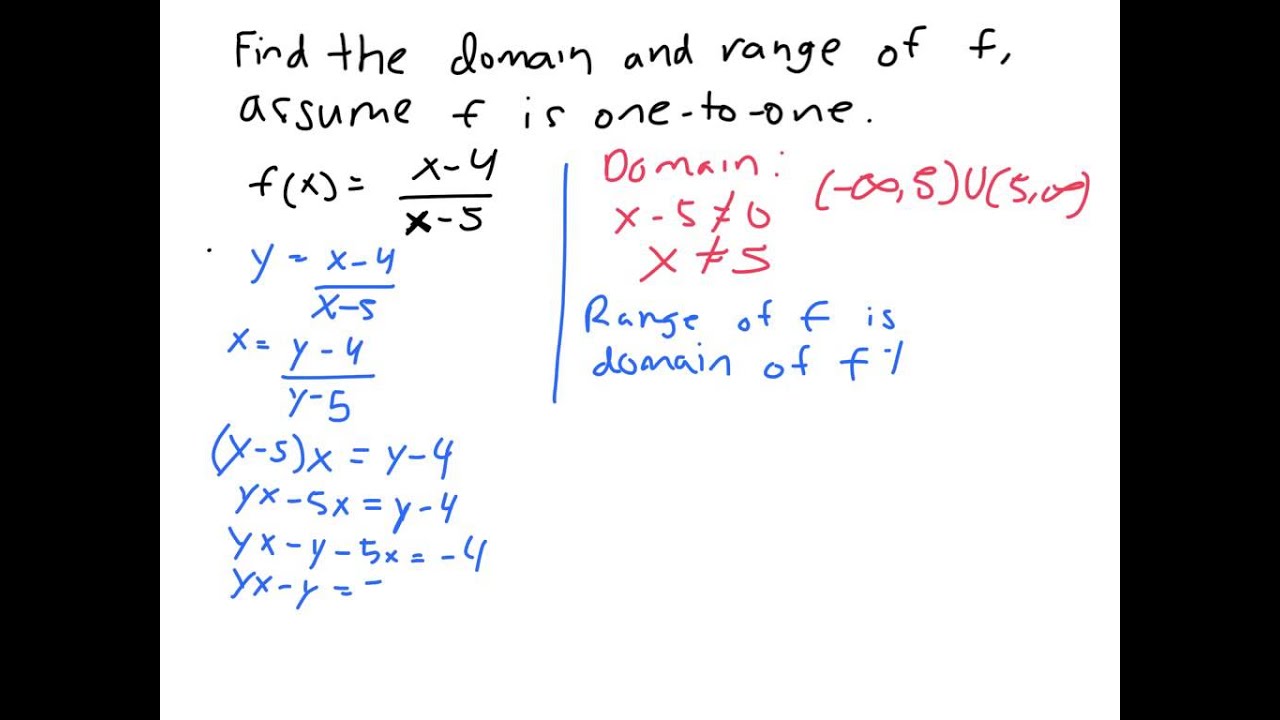 Find the domain and range of f,
assume f is one-to-one.
f(x) = x-4
x-5
y = x-4
x-5
x = y-4
y-5
(y-5)x = y-4
yx-5x = y-4
yx-y-5x = -4
yx-y = -
Domain:
x-5≠0
x≠5
(-∞,5)∪(5,∞)
Range of f is
domain of f⁻¹